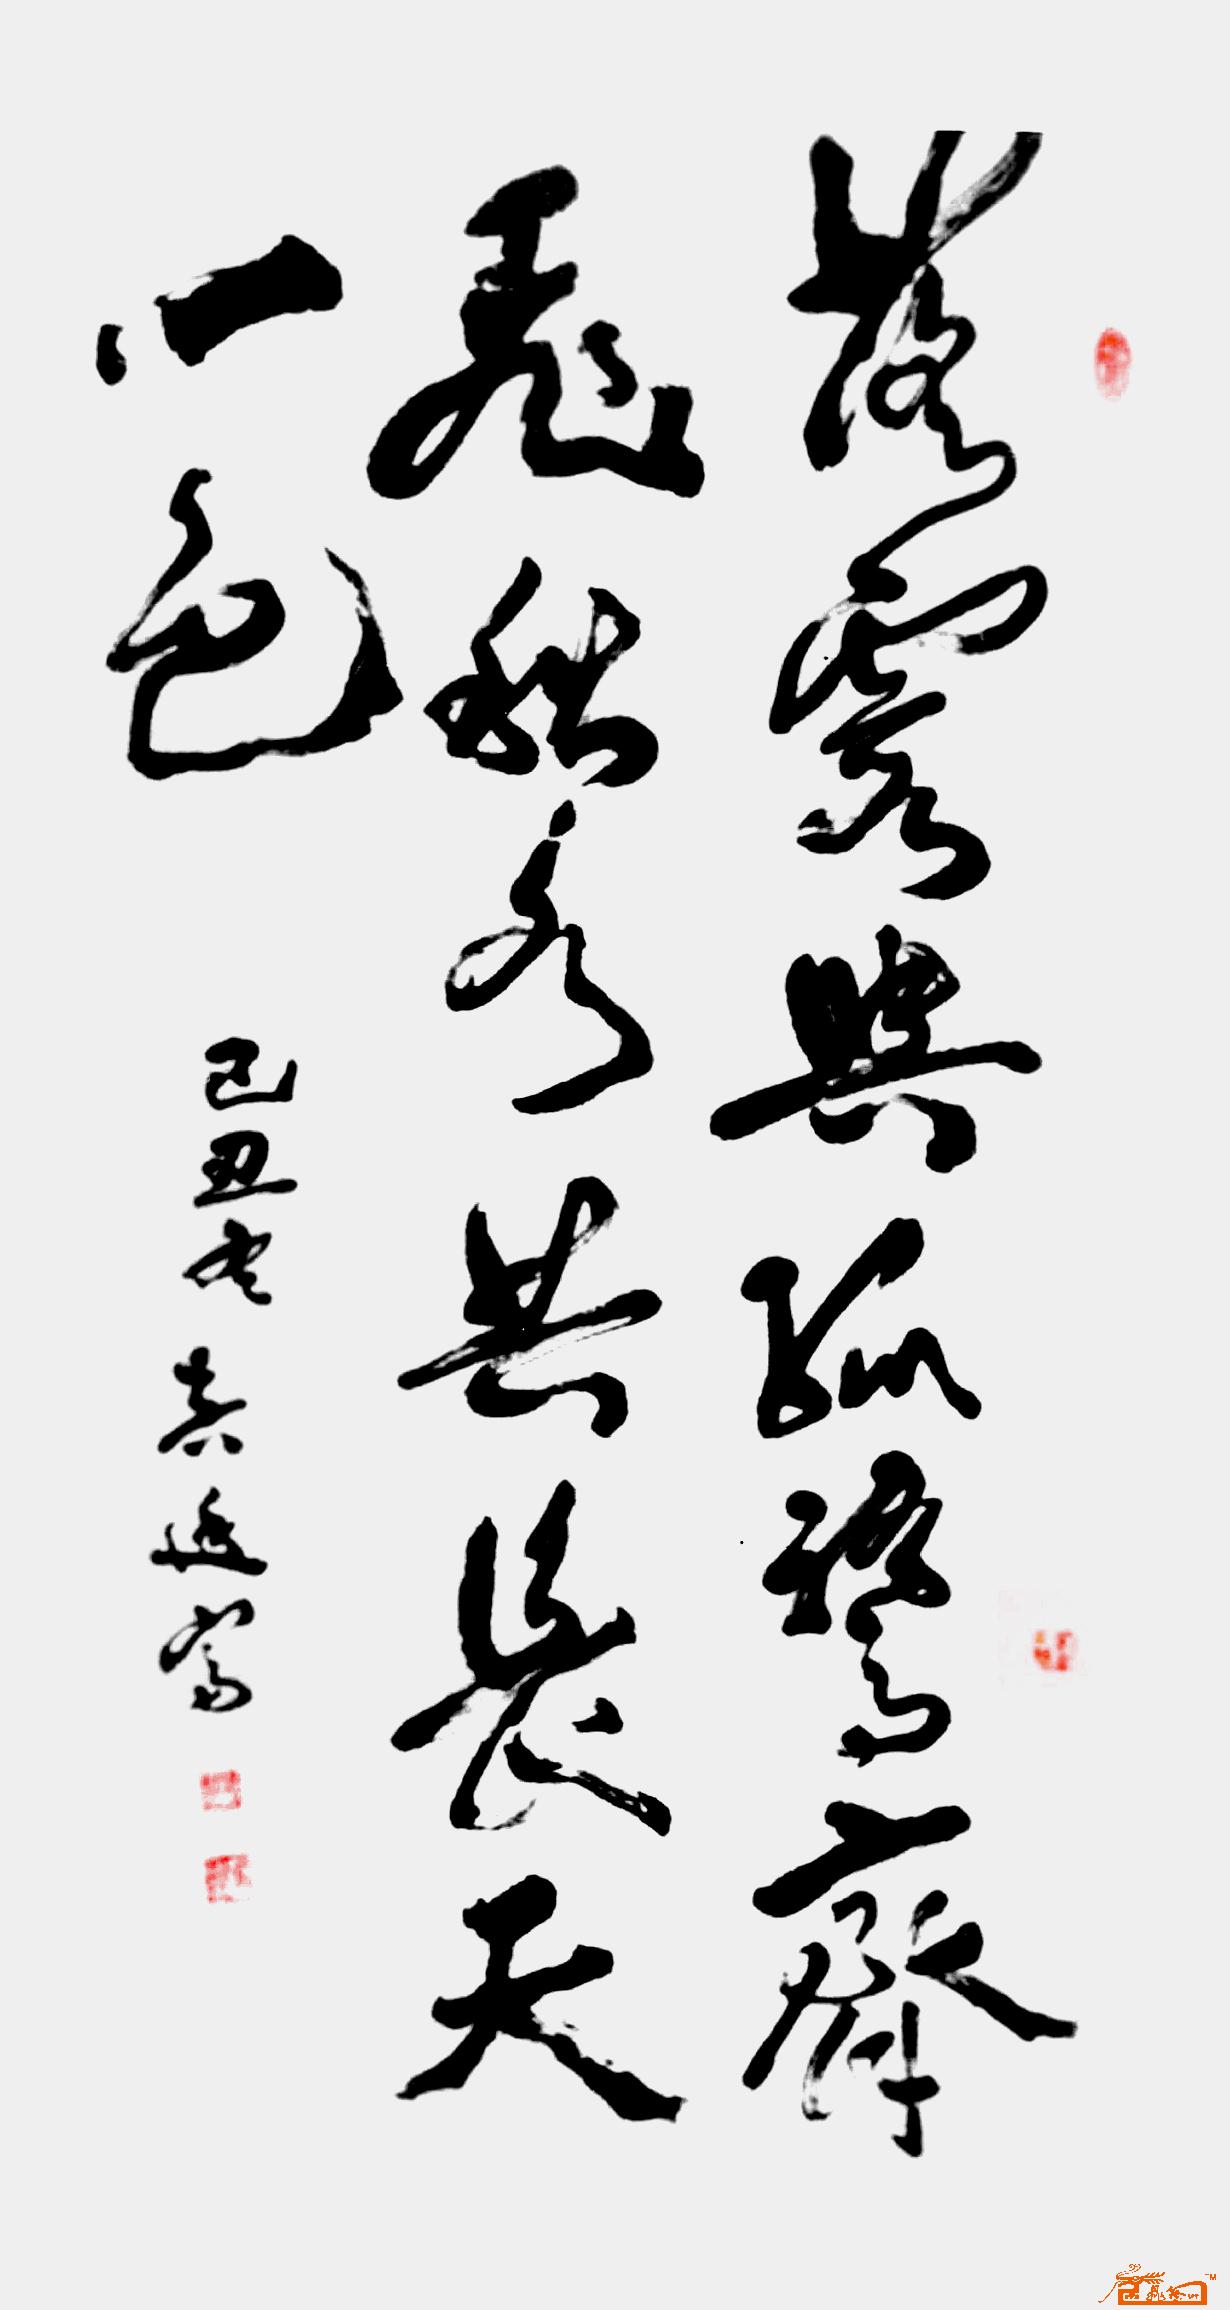 落霞與孤鶩齊
飛秋水共長天
一色
己丑冬